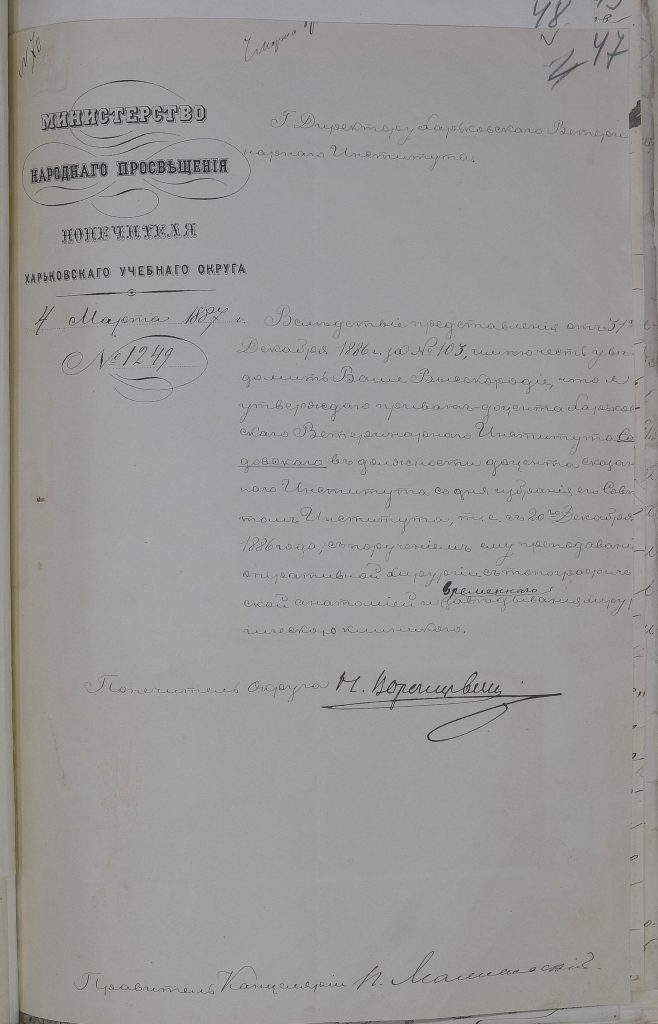 48
47
№ 70
7 марта
МИНИСТЕРСТВО
НАРОДНАГО ПРОСВѢЩЕНІЯ
ПОПЕЧИТЕЛЯ
ХАРЬКОВСКАГО УЧЕБНАГО ОКРУГА
4 Марта 1887 г.
№ 1249
Г. Директору Харьковскаго Ветери
нарнаго Института.
Вслѣдствіе представленія отъ 31го
Декабря 1886 г. за № 103, имѣю честь увѣ
домить Ваше Высокородіе, что я
утверждаю приватъ-доцента Харьков
скаго Ветеринарнаго Института Са
довскаго въ должности доцента сказан
наго Института со дня избранія его Совѣ
томъ Института, т. е. съ 20го Декабря
1886 года, съ порученіемъ ему преподавані
оперативной хирургіи съ топографиче
ской анатоміей и временнаго завѣдыванія хирур
гическою клиникою.
Попечитель округа Н.
Правитель Канцеляріи